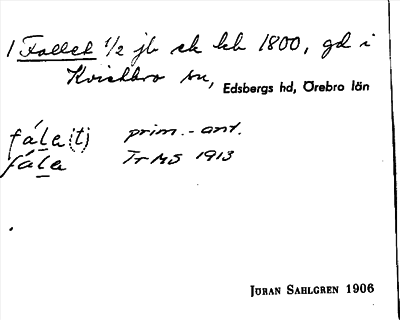 1 Fallet 1/2 jb sk kb 1800, gd i
Kvistbro sn, Edsbergs hd, Örebro län
fála(t) prim.-ant.
fála TrMS 1913
JÖRAN SAHLGREN 1906